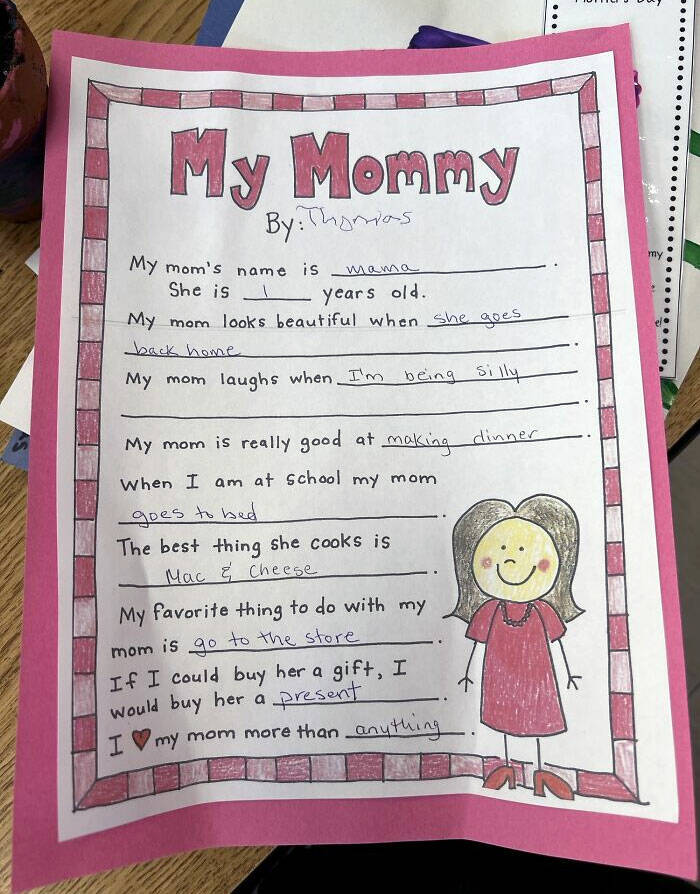 Mother's Day
My Mommy
By: Thomas
My mom's name is mama.
She is 1 years old.
My mom looks beautiful when she goes
back home.
My mom laughs when I'm being silly
.
My mom is really good at making dinner.
When I am at school my mom
goes to bed.
The best thing she cooks is
Mac & Cheese.
My favorite thing to do with my
mom is go to the store.
If I could buy her a gift, I
would buy her a present.
I ♥ my mom more than anything.
my